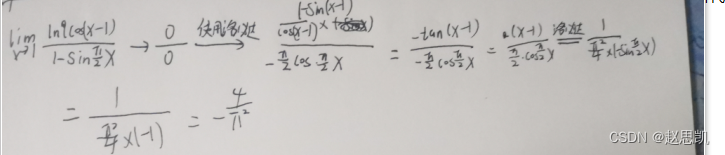 lim x→1 ln(cos(x-1) / 1-Sin π/2 x → 0/0 使用洛必达 1-Sin(x-1) / cos(x-1) × / -π/2 cos π/2 x = -tan(x-1) / -π/2 cos π/2 x = (x-1) / π/2 · cos π/2 x 洛必达 1 / π²/4 ×(-Sin π/2 x)
= 1 / π²/4 ×(-1) = -4/π²
CSDN @赵思凯